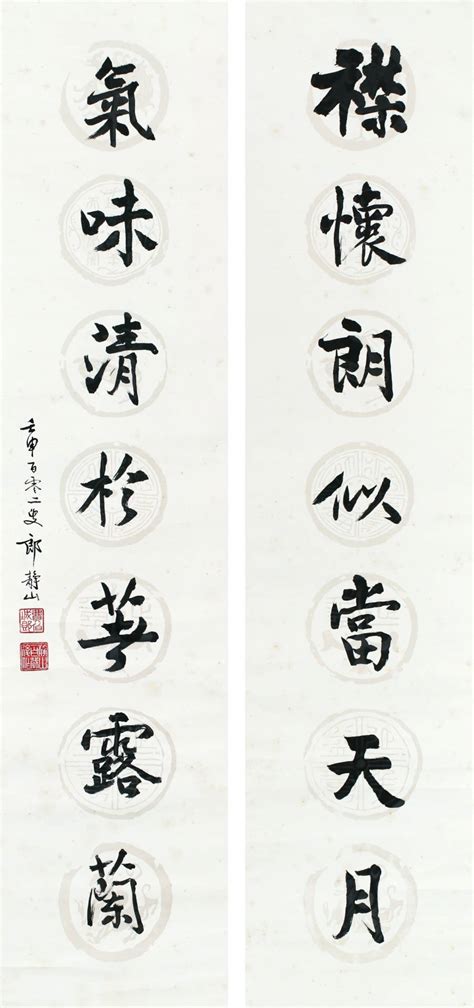 襟懷朗似當天月
氣味清於蕚露蘭
壬申百零二叟郎靜山